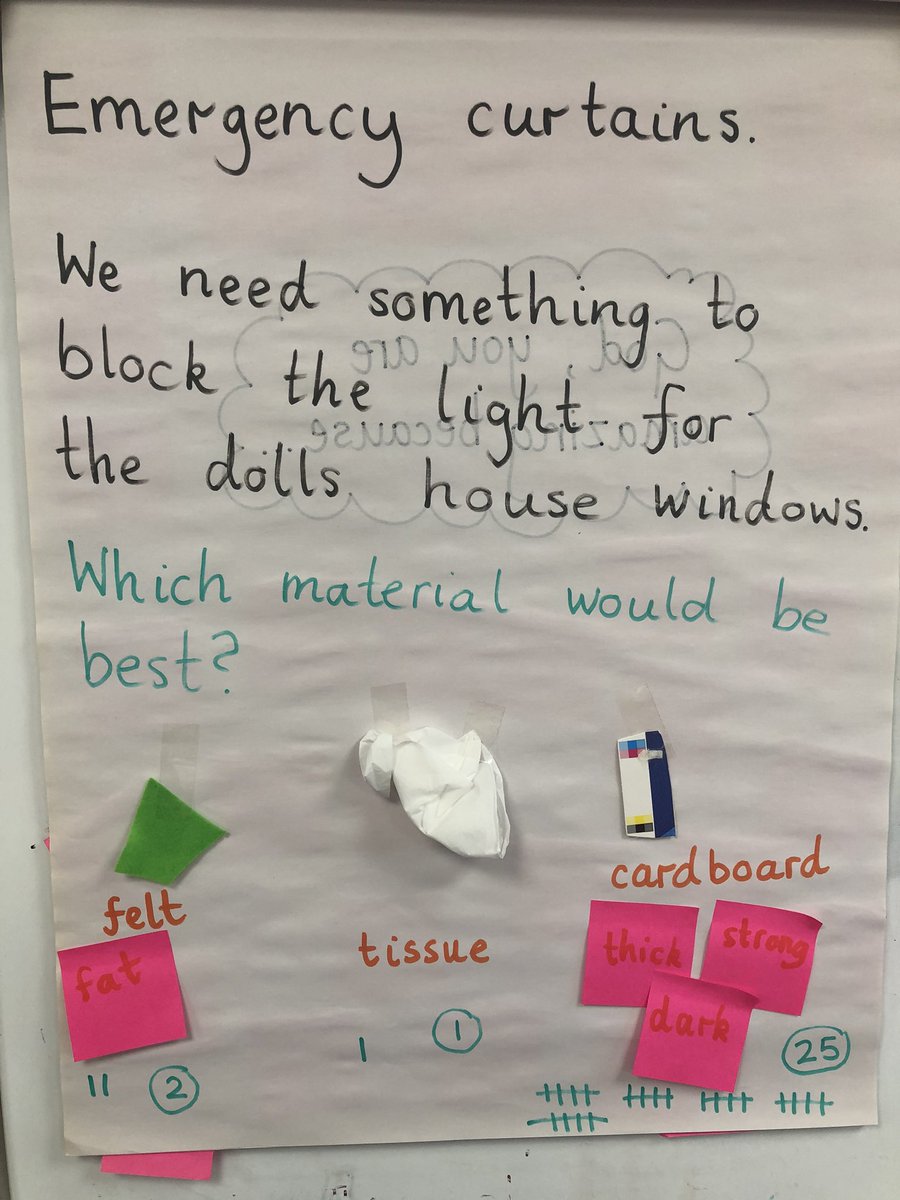 Emergency curtains.
We need something to
block the light for
the dolls house windows.
Which material would be
best?
felt
tissue
cardboard
fat
thick
strong
dark
2
1
25